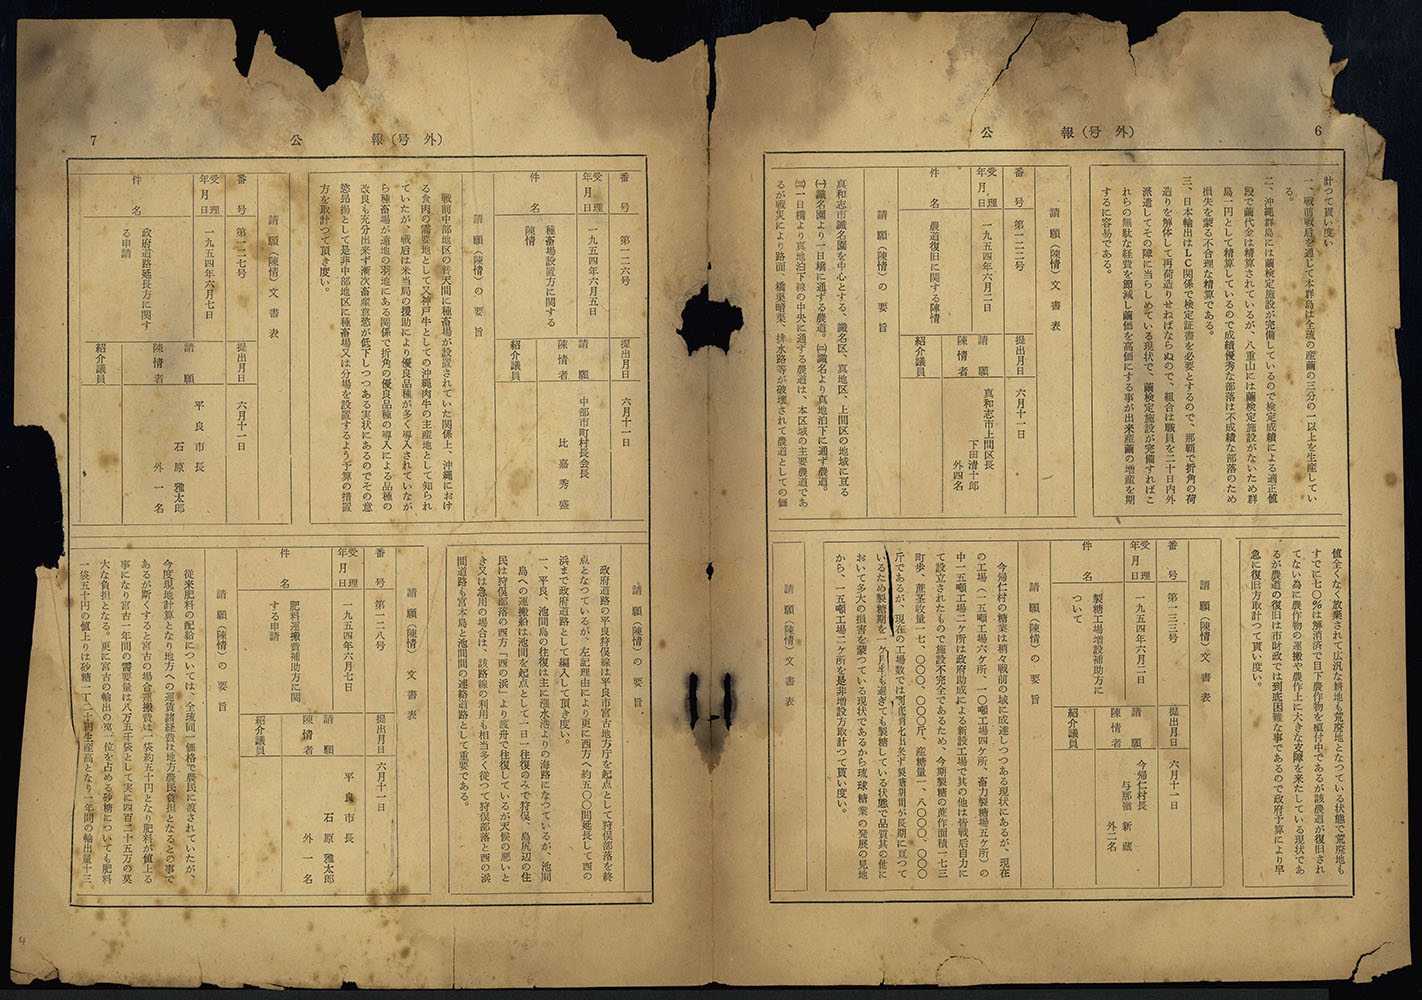 6
公報（号外）
計つて貰い度い
一、戦前戦后を通じて本群島は全琉の産繭の三分の一以上を生産してい
る。
二、沖縄群島には繭検定施設が完備しているので検定成績による適正値
段で繭代金は精算されているが、八重山には繭検定施設がないため群
島一円として精算しているので成績優秀な部落は不成績な部落のため
損失を蒙る不合理な精算である。
三、日本輸出はＬＣ関係で検定証書を必要とするので、那覇で折角の荷
造りを解体して再荷造りせねばならぬので、組合は職員を二十日内外
派遣してその障に当らしめている現状で、繭検定施設が完備すればこ
れらの無駄な経費を節減し繭価を高価にする事が出来産繭の増産を期
するに容易である。
請願（陳情）文書表
番号 第一二二号 提出月日 六月十一日
受理年月日 一九五四年六月二日
請願陳情者 真和志市上間区長
下田清十郎
外四名
件名 農道復旧に関する陳情
紹介議員
請願（陳情）の要旨
真和志市識名園を中心とする、識名区、真地区、上間区の地域に亘る
㈠識名園より一日橋に通ずる農道。㈡識名より真地泊下に通ず農道。
㈢一日橋より真地泊下線の中央に通ずる農道は、本区域の主要農道であ
るが戦災により路面、橋梁暗渠、排水路等が破壊されて農道としての価
値全くなく放棄されて広汎な耕地も荒廃地となつている状態で荒廃地も
すでに七〇％は解消済で目下農作物を植付中であるが該農道が復旧され
てない為に農作物の運搬や農作上に大きな支障を来たしている現状であ
るが農道の復旧は市財政では到底困難な事であるので政府予算により早
急に復旧方取計つて貰い度い。
請願（陳情）文書表
番号 第一二三号 提出月日 六月十一日
受理年月日 一九五四年六月二日
請願陳情者 今帰仁村長
与那嶺新蔵
外二名
件名 製糖工場増設補助方に
ついて
紹介議員
請願（陳情）の要旨
今帰仁村の糖業は稍々戦前の域に成達しつつある現状にあるが、現在
の工場（一五噸工場六ヶ所、一〇噸工場四ヶ所、畜力製糖場五ヶ所）の
中一五噸工場二ヶ所は政府助成による新設工場で其の他は皆戦后自力に
て設立されたもので施設不完全であるため、今期製糖の蔗作面積一七三
町歩、蔗茎收量一七、〇〇〇、〇〇〇斤、産糖量一、八〇〇〇、〇〇〇
斤であるが、現在の工場数では到底消化出来ず製糖期間が長期に亘つて
いるため製糖期を一ヶ月半も過ぎても製糖している状態で品質其の他に
おいて多大の損害を蒙つている現状であるから琉球糖業の発展の見地
から、一五噸工場二ヶ所を是非増設方取計つて貰い度い。
請願（陳情）文書表
7
公報（号外）
番号 第一二六号 提出月日 六月十一日
受理年月日 一九五四年六月五日
請願陳情者 中部市町村長会長
比嘉秀盛
件名 種畜場設置方に関する
陳情
紹介議員
請願（陳情）の要旨
戦前中部地区の普天間に種畜場が設置されていた関係上、沖縄におけ
る食肉の需要地として又神戸牛としての沖縄肉牛の主産地として知られ
ていたが、戦后は米当局の援助により優良品種が多く導入されていなが
ら種畜場が遠地の羽地にある関係で折角の優良品種の導入による品種の
改良も充分出来ず漸次畜産意慾が低下しつつある実状にあるのでその意
慾昂揚として是非中部地区に種畜場又は分場を設置するよう予算の措置
方を取計つて頂き度い。
請願（陳情）文書表
番号 第一二七号 提出月日 六月十一日
受理年月日 一九五四年六月七日
請願陳情者 平良市長
石原雅太郎
外一名
件名 政府道路延長方に関す
る申請
紹介議員
請願（陳情）の要旨．
政府道路の平良狩俣線は平良市宮古地方庁を起点として狩俣部落を終
点となつているが、左記理由により更に西方へ約五〇〇間延長して西の
浜まで政府道路として編入して頂き度い。
一、平良、池間島の往復は主に漲水港よりの海路になつているが、池間
島への運搬船は池間を起点として一日一往復のみで狩俣、島尻辺の住
民は狩俣部落の西方「西の浜」より渡舟で往復しているが天候の悪いと
き又は急用の場合は、該路線の利用も相当多く従つて狩俣部落と西の浜
間道路も宮本島と池間間の連絡道路として重要である。
請願（陳情）文書表
番号 第一二八号 提出月日 六月十一日
受理年月日 一九五四年六月七日
請願陳情者 平良市長
石原雅太郎
外一名
件名 肥料運搬費補助方に関
する申請
紹介議員
請願（陳情）の要旨
従来肥料の配給については、全琉同一価格で農民に渡されていたが、
今度現地計算となり地方への運賃諸経費は地方農民負担となるとの事で
あるが斯くすると宮古の場合運搬費は一袋約五十円となり肥料が値上る
事になり宮古一年間の需要量は八万五千袋として実に四百二十五万の莫
大な負担となる。更に宮古の輸出の第一位を占める砂糖についても肥料
一袋五十円の値上りは砂糖一丁二十円生産高となり一年間の輸出量十三
4